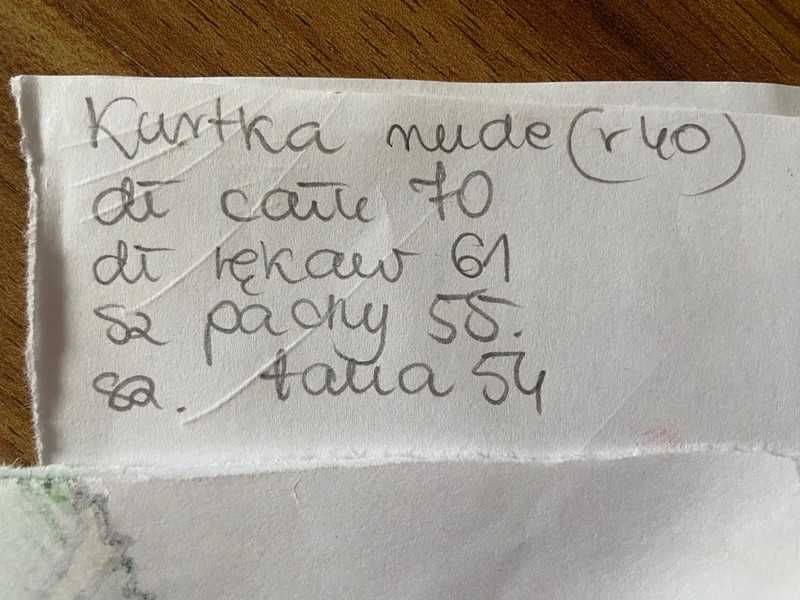 Kurtka nude (r 40)
dł całk 70
dł rękaw 61
sz pachy 55.
sz. talia 54